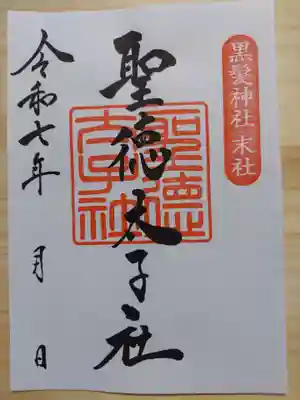 黒髪神社 末社
聖徳太子社
聖徳太子神社
令和七年 月 日